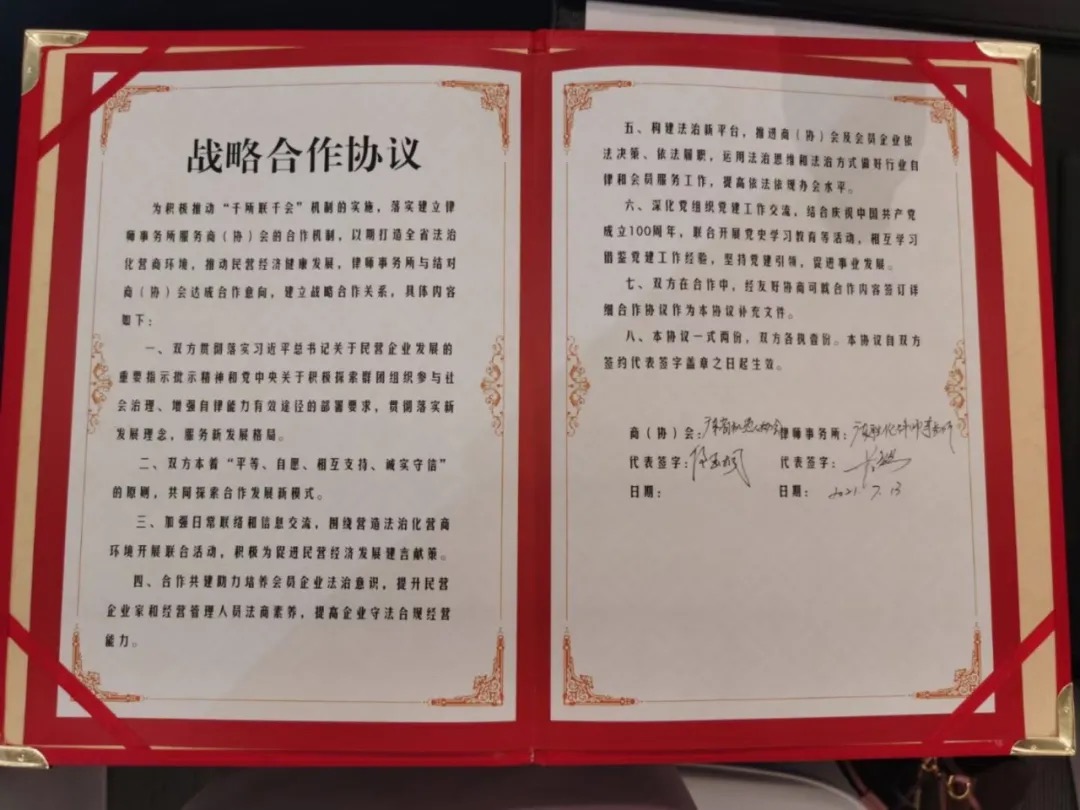 战略合作协议
为积极推动“千所联千会”机制的实施，落实建立律
师事务所服务商（协）会的合作机制，以期打造全省法治
化营商环境，推动民营经济健康发展，律师事务所与结对
商（协）会达成合作意向，建立战略合作关系，具体内容
如下：
一、双方贯彻落实习近平总书记关于民营企业发展的
重要指示批示精神和党中央关于积极探索群团组织参与社
会治理、增强自律能力有效途径的部署要求，贯彻落实新
发展理念，服务新发展格局。
二、双方本着“平等、自愿、相互支持、诚实守信”
的原则，共同探索合作发展新模式。
三、加强日常联络和信息交流，围绕营造法治化营商
环境开展联合活动，积极为促进民营经济发展建言献策。
四、合作共建助力培养会员企业法治意识，提升民营
企业家和经营管理人员法商素养，提高企业守法合规经营
能力。
五、构建法治新平台，推进商（协）会及会员企业依
法决策、依法履职，运用法治思维和法治方式做好行业自
律和会员服务工作，提高依法依规办会水平。
六、深化党组织党建工作交流，结合庆祝中国共产党
成立100周年，联合开展党史学习教育等活动，相互学习
借鉴党建工作经验，坚持党建引领，促进事业发展。
七、双方在合作中，经友好协商可就合作内容签订详
细合作协议作为本协议补充文件。
八、本协议一式两份，双方各执壹份。本协议自双方
签约代表签字盖章之日起生效。
商（协）会： 律师事务所：
代表签字： 代表签字：
日期： 日期： 2021.7.13